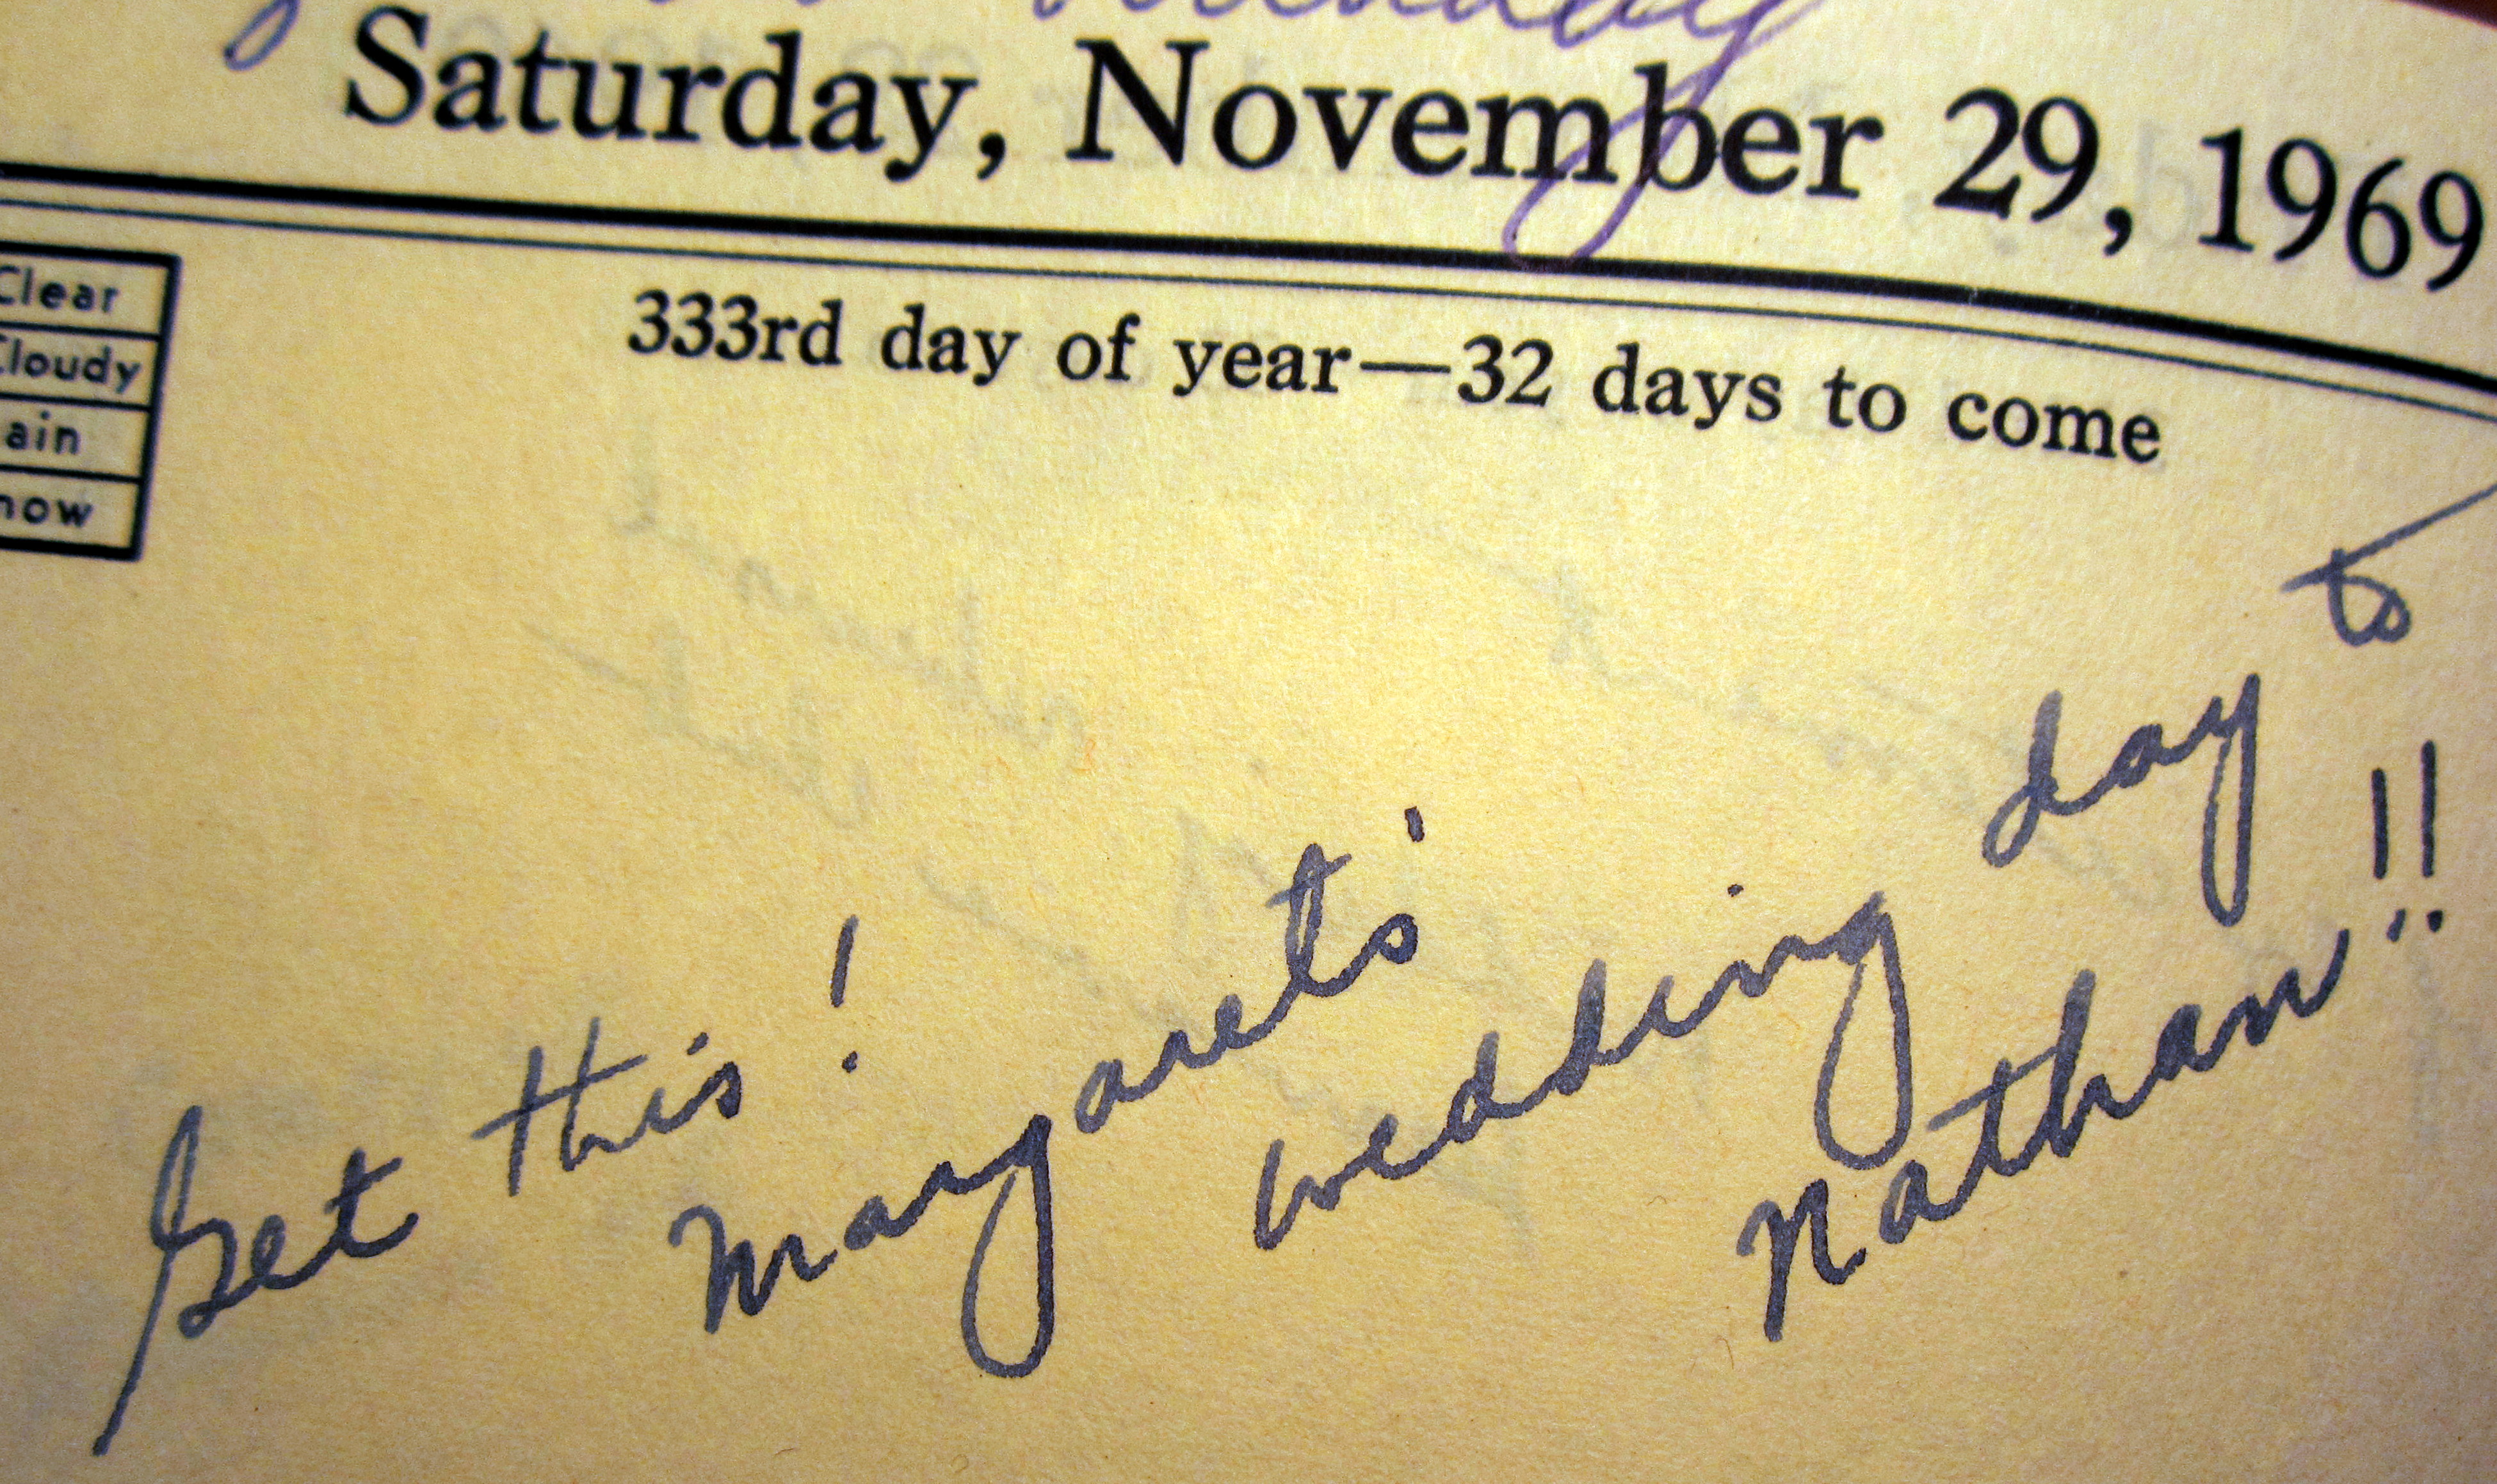 Saturday, November 29, 1969
333rd day of year—32 days to come
Clear
Cloudy
ain
now
Get this!
Margaret's wedding day to
Nathan!!